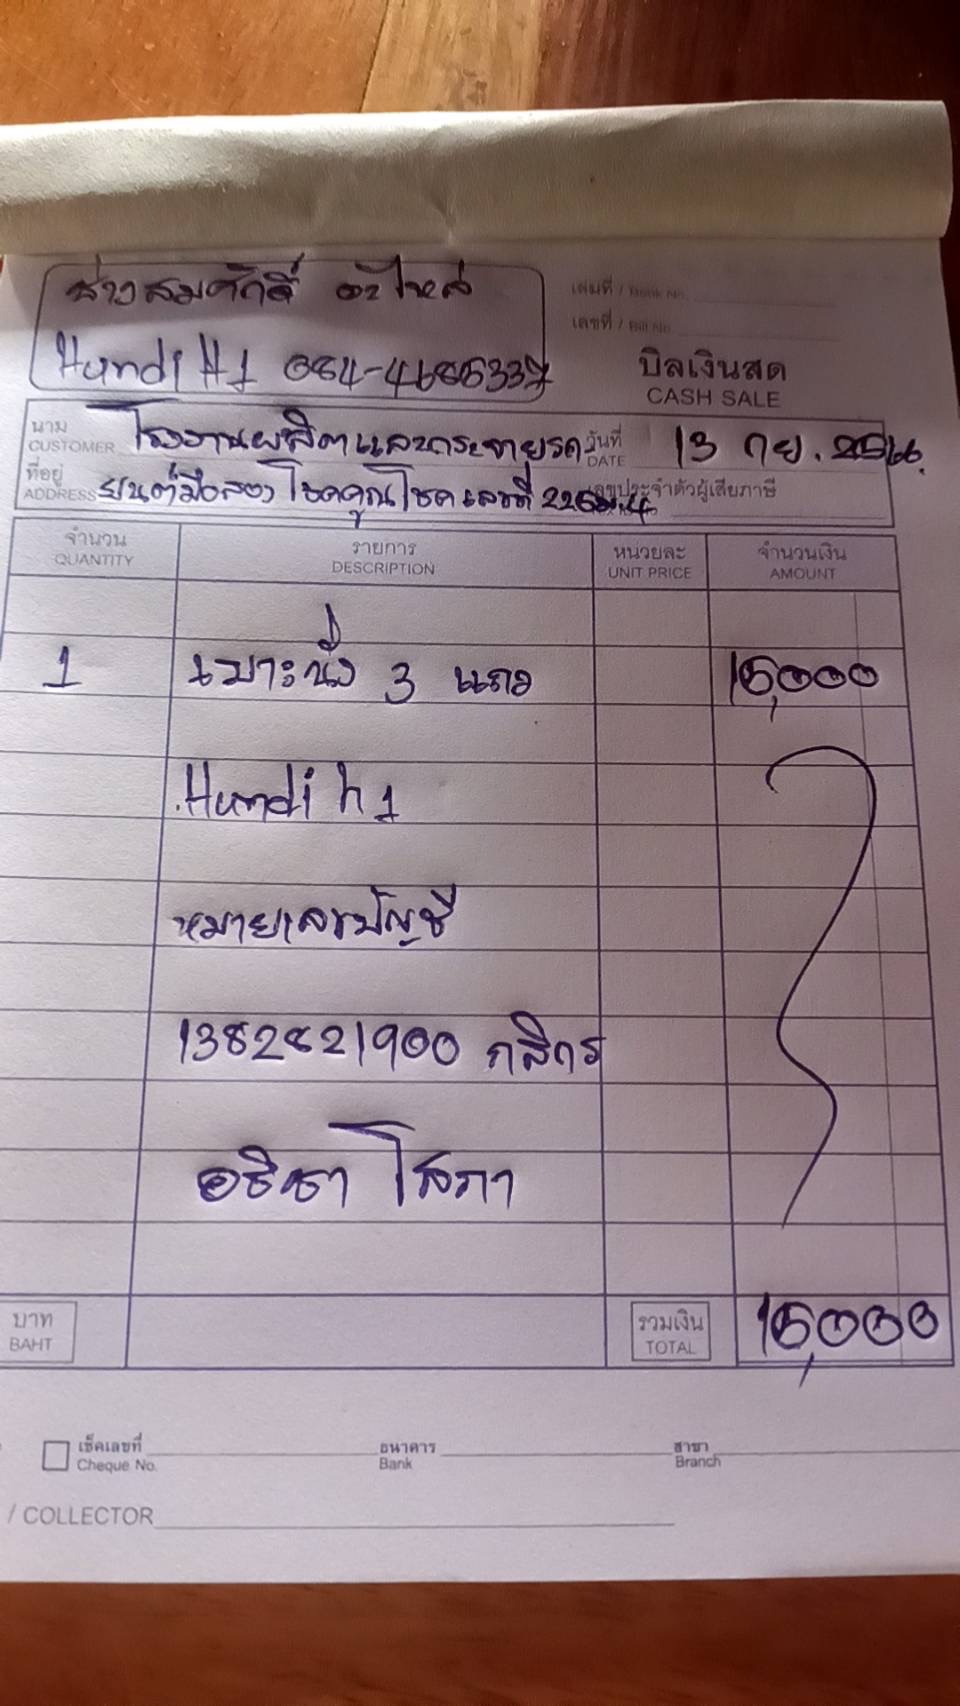 ช่างสมศักดิ์ อะไหล่
Hundi H1 084-4686337
เล่มที่ / Book No.
เลขที่ / Bill No.
บิลเงินสด
CASH SALE
นาม โรงงานผลิตและกระจายรถ วันที่ 13 กย. 2566
CUSTOMER DATE
ที่อยู่ ยนต์มือสอง โชคคูณโชค เลขที่ 226 ม.4 เลขประจำตัวผู้เสียภาษี
ADDRESS
จำนวน รายการ หน่วยละ จำนวนเงิน
QUANTITY DESCRIPTION UNIT PRICE AMOUNT
1 เบาะนั่ง 3 แถว 15,000
Hundi h1
หมายเลขบัญชี
1382821900 กสิกร
อธิชา โสภา
บาท รวมเงิน 15,000
BAHT TOTAL
เช็คเลขที่ ธนาคาร สาขา
Cheque No. Bank Branch
/ COLLECTOR